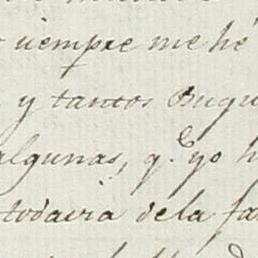 siempre me hé
y tantos Buqu
algunas, q.e yo h
todavia dela fa